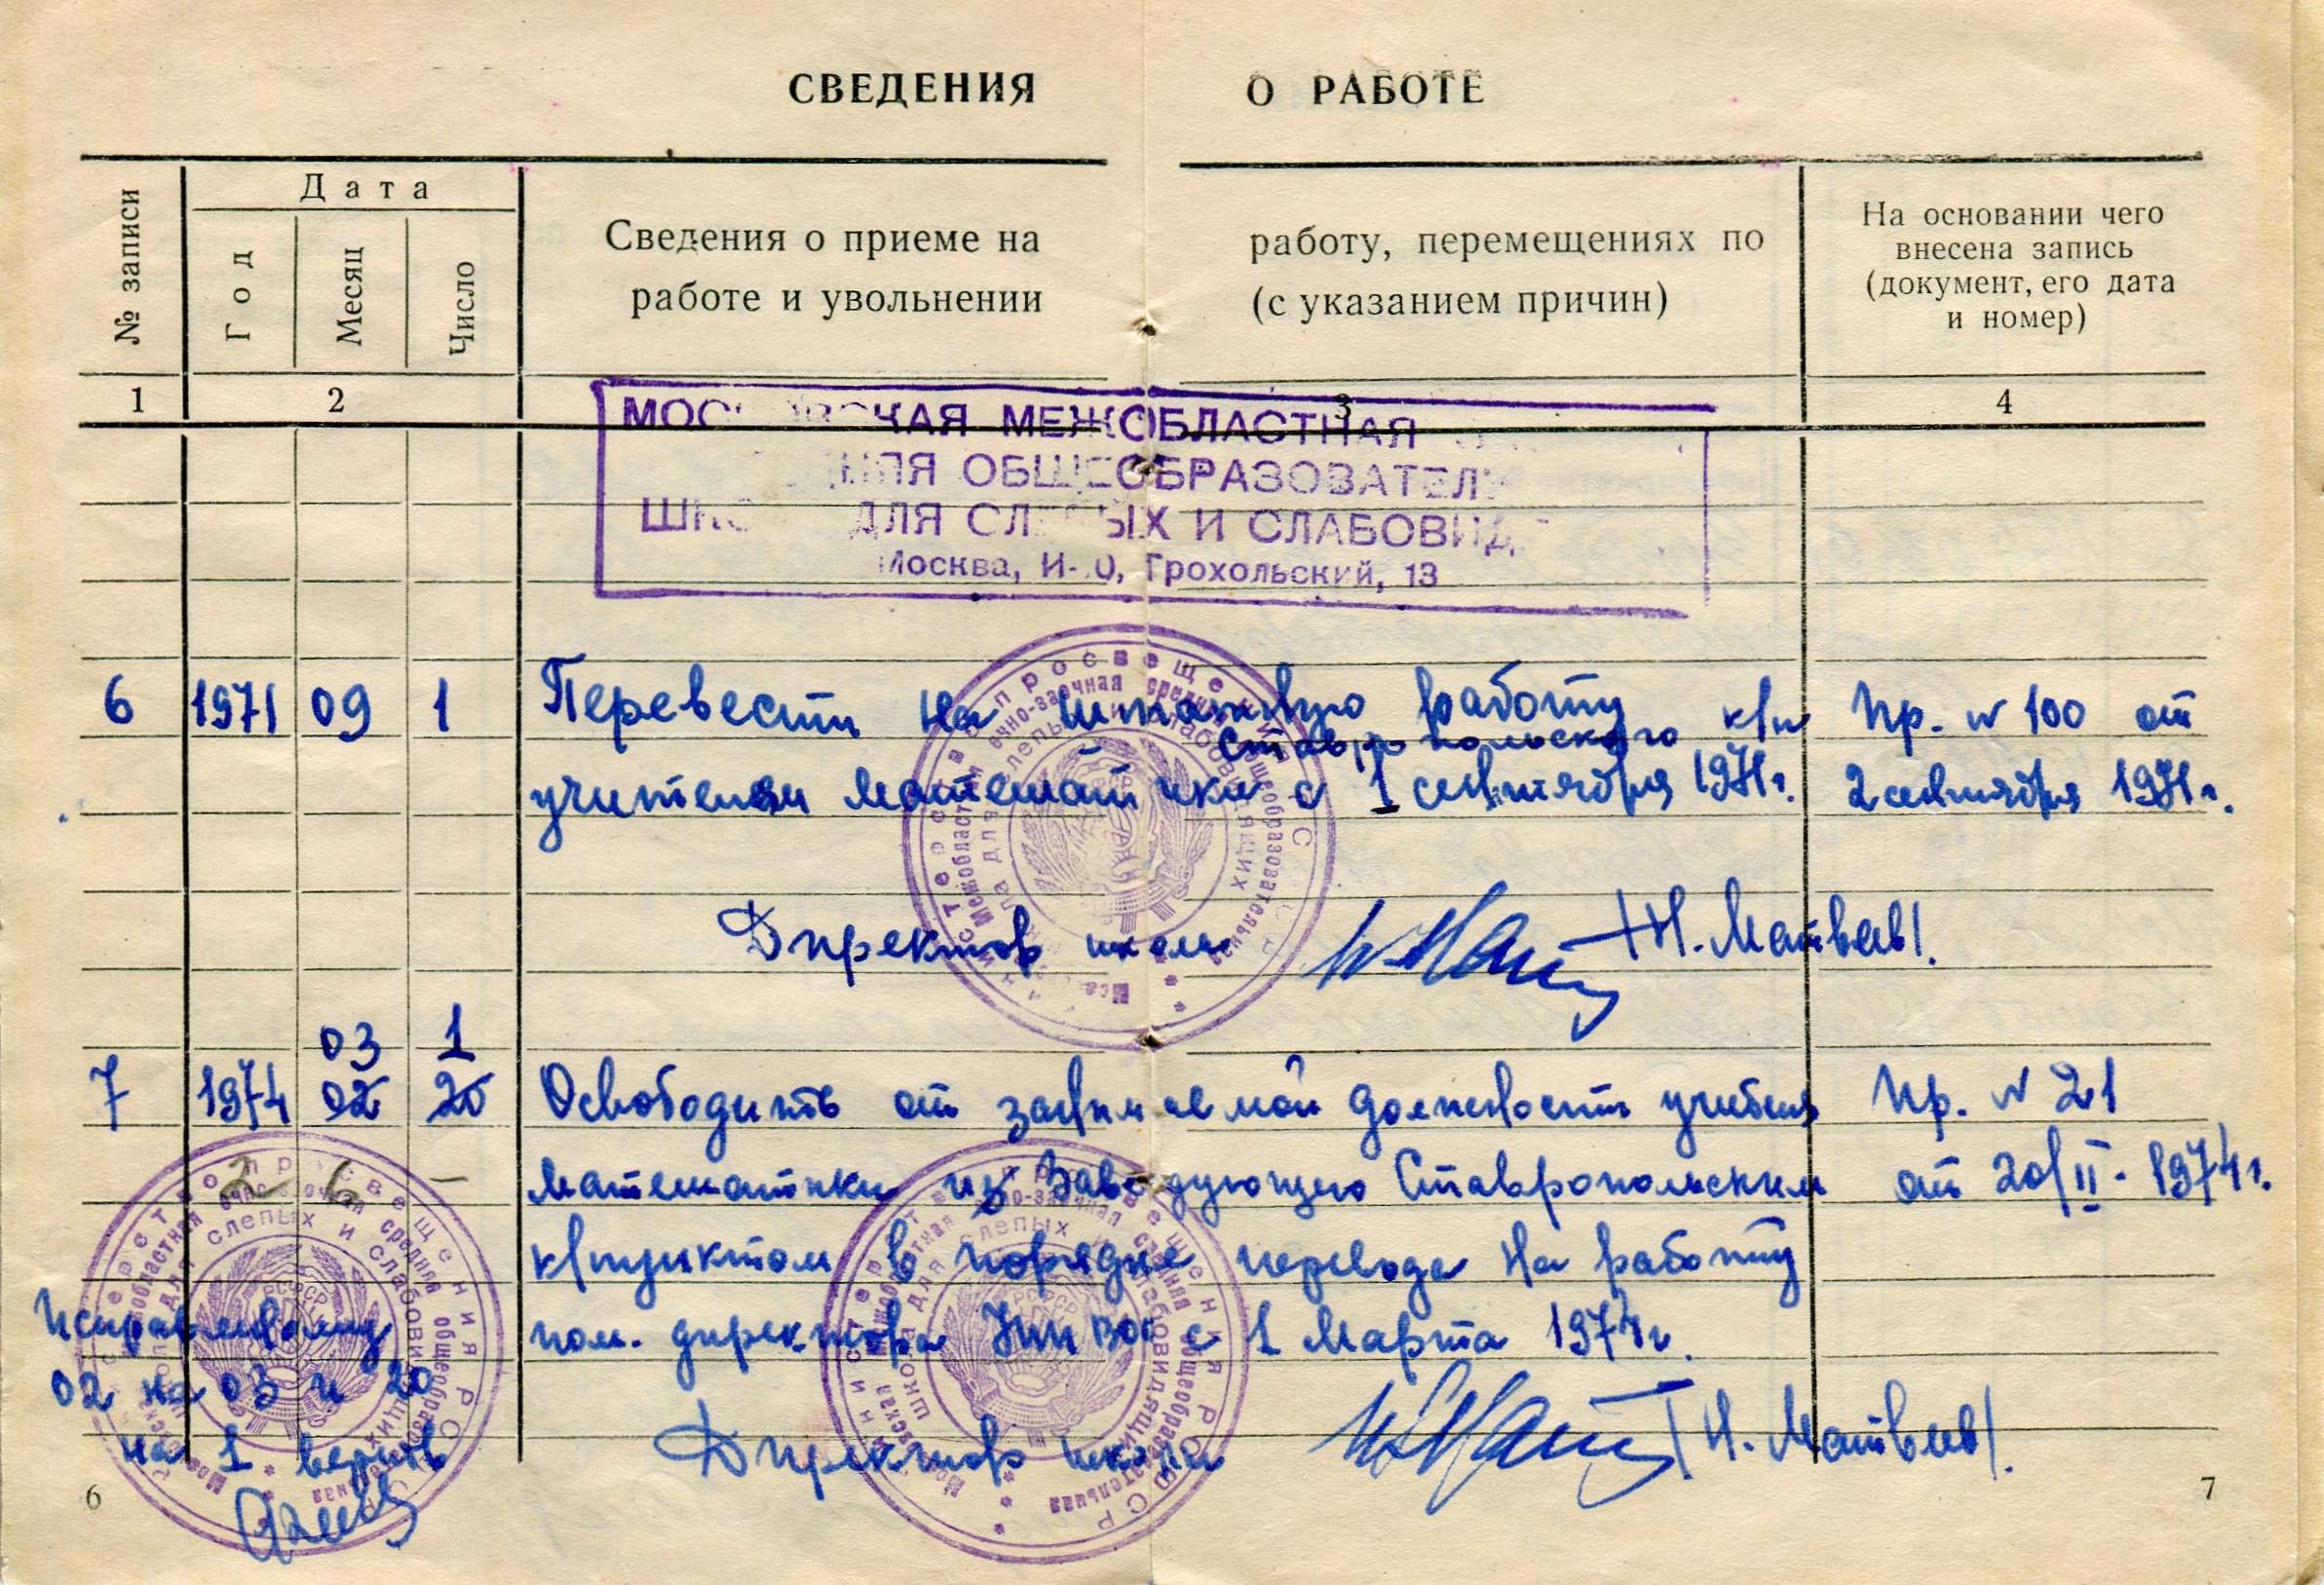 СВЕДЕНИЯ О РАБОТЕ
№ записи
Дата
Год
Месяц
Число
Сведения о приеме на работу, перемещениях по
работе и увольнении (с указанием причин)
На основании чего
внесена запись
(документ, его дата
и номер)
1 2 3 4
МОСКОВСКАЯ МЕЖОБЛАСТНАЯ
ОБЩЕОБРАЗОВАТЕЛЬ
ШКОЛА ДЛЯ СЛЕПЫХ И СЛАБОВИД
Москва, И-10, Грохольский, 13
6 1971 09 1 Перевести на штатную работу Пр. № 100 от
Ставропольского к/п
учителем математики с 1 сентября 1971г. 2 сентября 1971г.
Директор школы /Н. Матвеев/.
03 1
7 1974 02 20 Освободить от занимаемой должности учителя Пр. № 21
математики из Заведующего Ставропольским от 20/II-1974г.
2 6 –
к/пунктом в порядке перевода на работу
пом. директора УПП ВОС с 1 Марта 1974г.
Исправленному
02 на 03 и 20
на 1 верить
Директор школы /Н. Матвеев/.
6
7